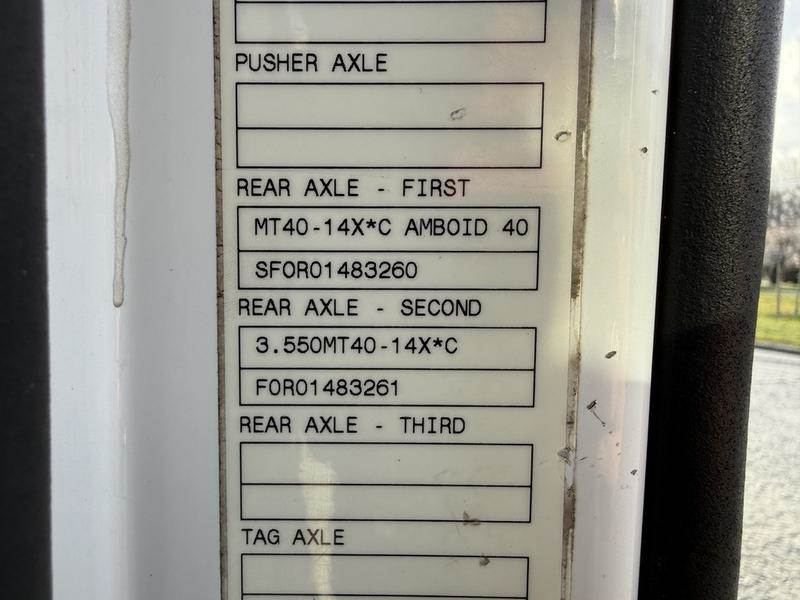 PUSHER AXLE
REAR AXLE - FIRST
MT40-14X*C AMBOID 40
SFOR01483260
REAR AXLE - SECOND
3.550MT40-14X*C
FOR01483261
REAR AXLE - THIRD
TAG AXLE